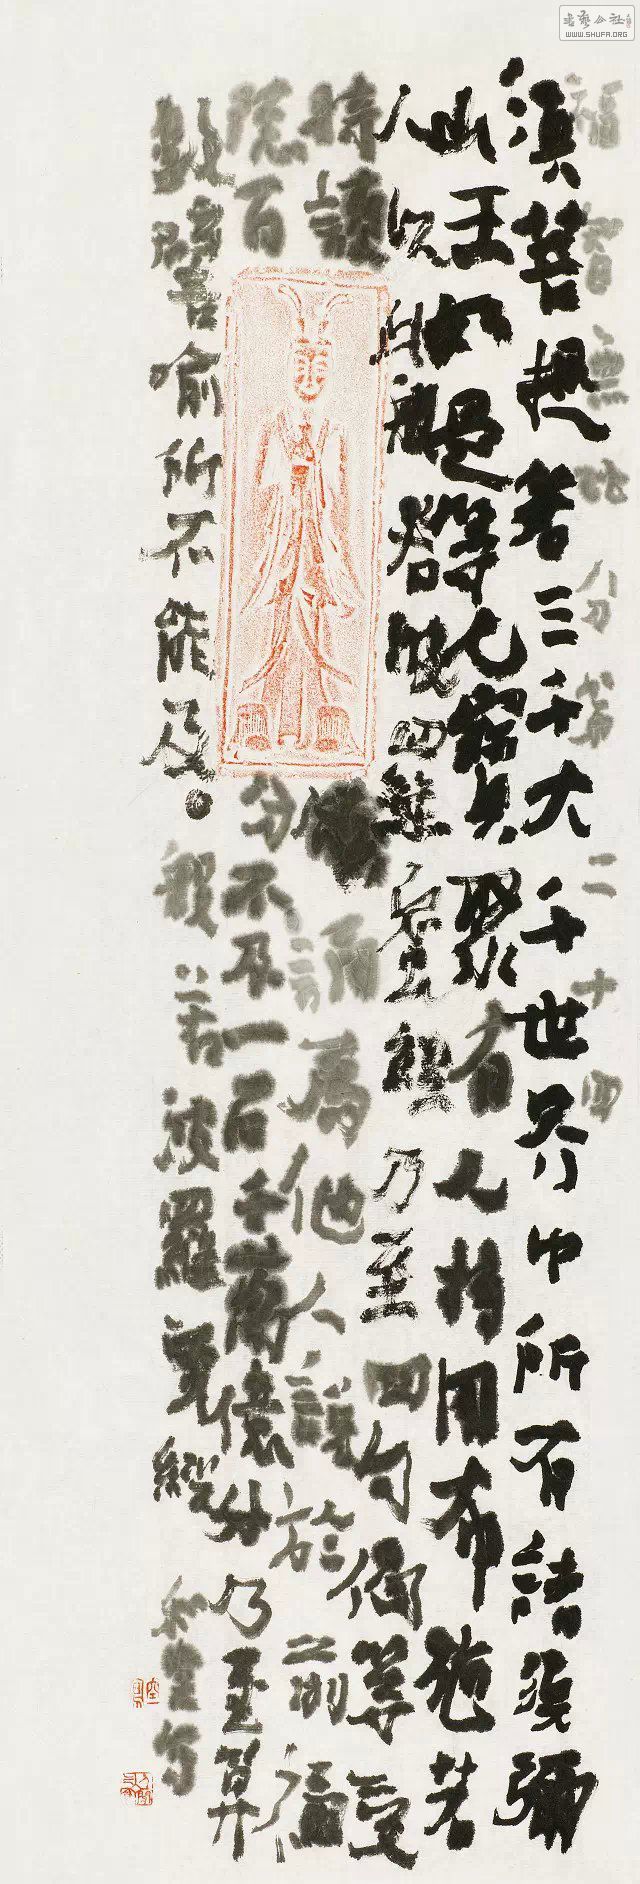 福智無比分第二十四
須菩提若三千大千世界中所有諸須彌
山王如是等七寶聚有人持用布施若
人以此般若波羅蜜經乃至四句偈等受
持讀誦為他人說於前福
德百分不及一百千萬億分乃至算
數譬喻所不能及 般若波羅蜜經
書藝公社
WWW.SHUFA.ORG